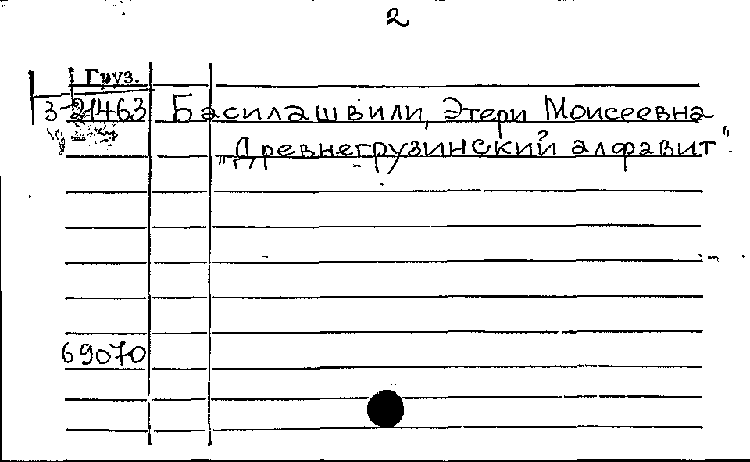 2
Груз.
3-21463 Басилашвили, Этери Моисеевна
„Древнегрузинский алфавит".
69070